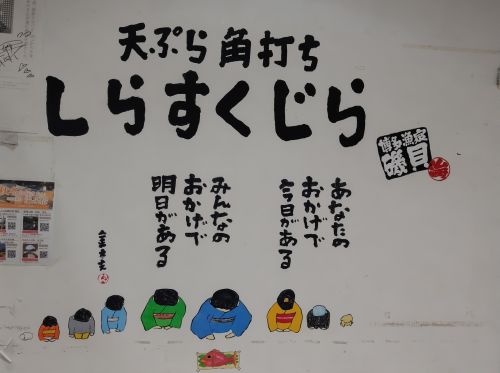 天ぷら 角打ち
しらすくじら
博多漁家
磯貝
あなたの
おかげで
今日がある
みんなの
おかげで
明日がある